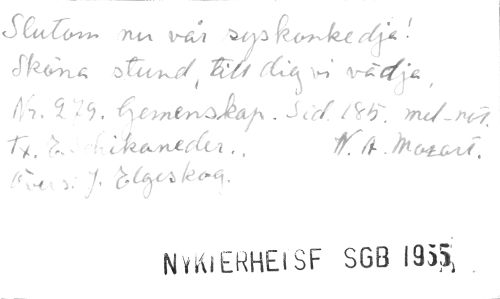 Slutom nu vår syskonkedja!
Sköna stund, till dig vi vädja,
Nr. 279. Gemenskap. Sid. 185. mel-not.
Tx. E. Schikaneder.. W. A. Mozart.
Övers: J. Elgeskog.
NYKTERHETSF SGB 1955,